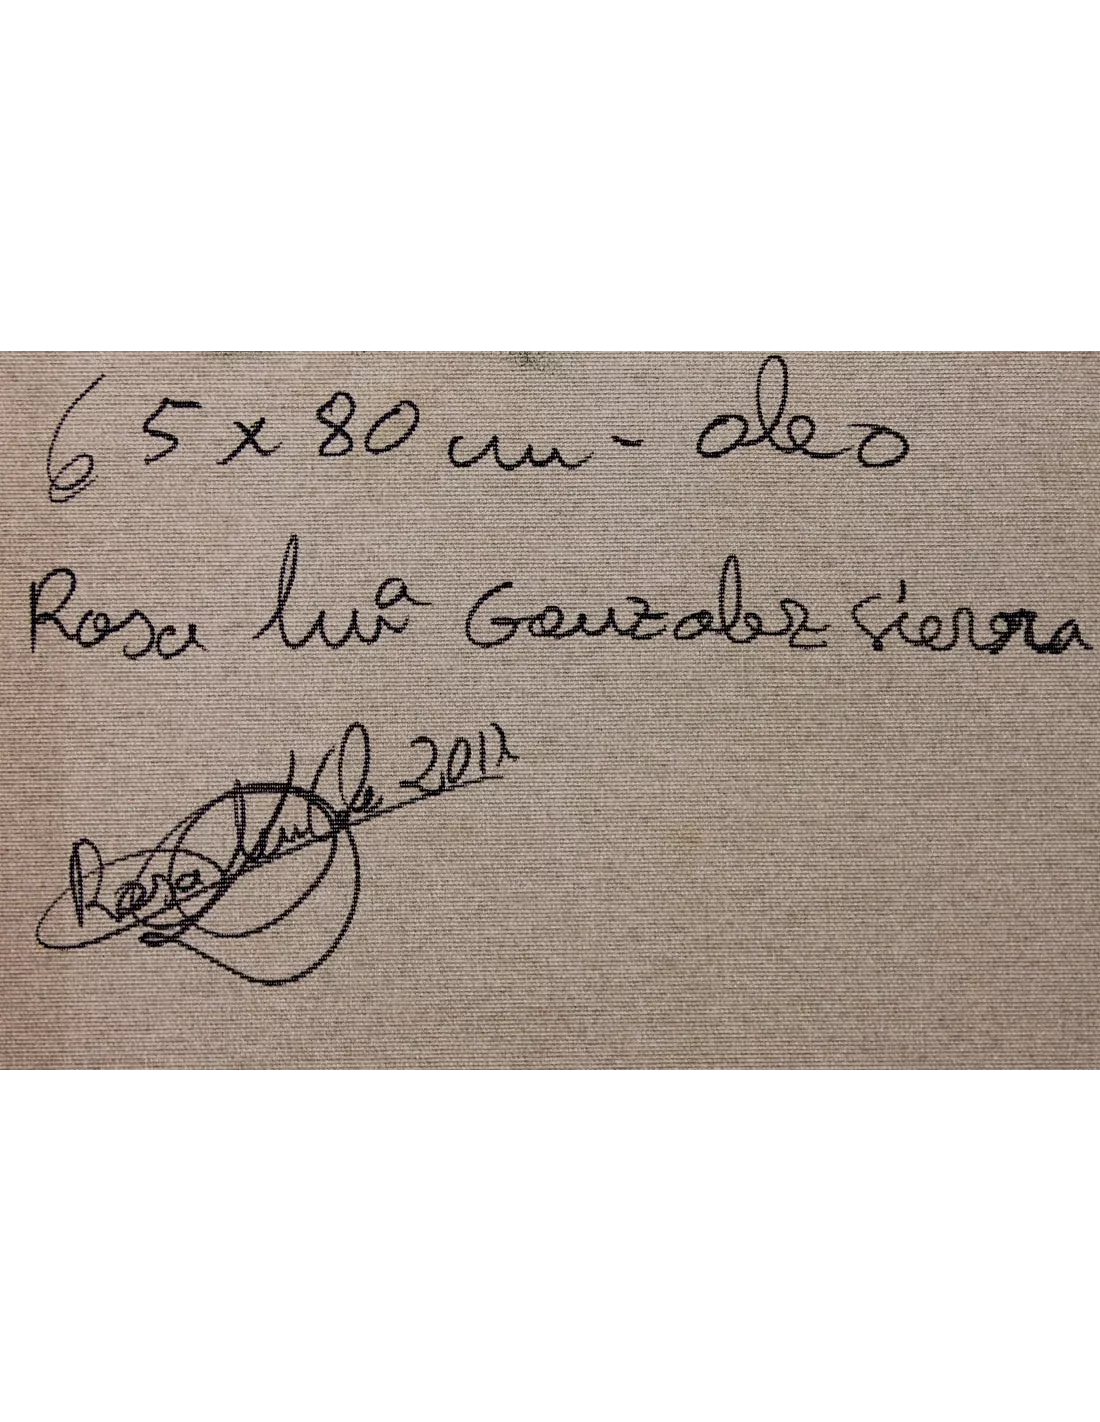 65 x 80 cm - oleo
Rosa Mª Gonzalez Sierra
Rosa 2012